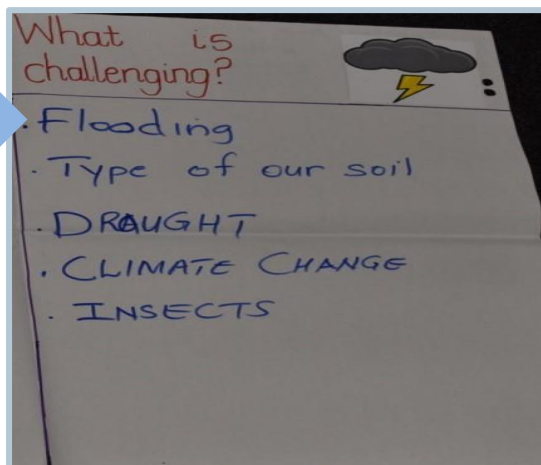 What is
challenging?
. Flooding
. Type of our soil
. DRAUGHT
. CLIMATE CHANGE
. INSECTS